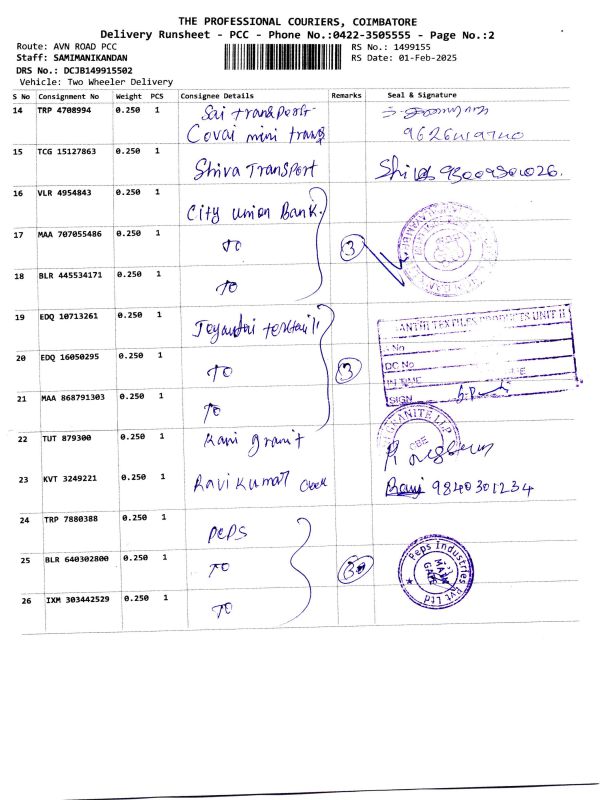 THE PROFESSIONAL COURIERS, COIMBATORE
Delivery Runsheet - PCC - Phone No.:0422-3505555 - Page No.:2
Route: AVN ROAD PCC
RS No.: 1499155
Staff: SAMIMANIKANDAN
RS Date: 01-Feb-2025
DRS No.: DCJB149915502
Vehicle: Two Wheeler Delivery
S No Consignment No Weight PCS Consignee Details Remarks Seal & Signature
14 TRP 4708994 0.250 1 Sai transport
Covai mini trans
15 TCG 15127863 0.250 1 Shiva Transport Shiva 93009301026.
16 VLR 4954843 0.250 1 City union Bank.
17 MAA 707055486 0.250 1 TO 3
18 BLR 445534171 0.250 1 TO
19 EDQ 10713261 0.250 1
ANTHI TEXTILES PRODUCTS UNIT II
No
20 EDQ 16050295 0.250 1 TO 3
DC No
IN TIME
21 MAA 868791303 0.250 1 TO
SIGN
22 TUT 879300 0.250 1 Kani granit
GRANITE LLP
CBE
23 KVT 3249221 0.250 1 Ravi Kumar Ravi 9840301234
24 TRP 7880388 0.250 1 PEPS
25 BLR 640302800 0.250 1 TO 3
Peps Industries Pvt Ltd
MAIN
GATE
26 IXM 303442529 0.250 1 TO